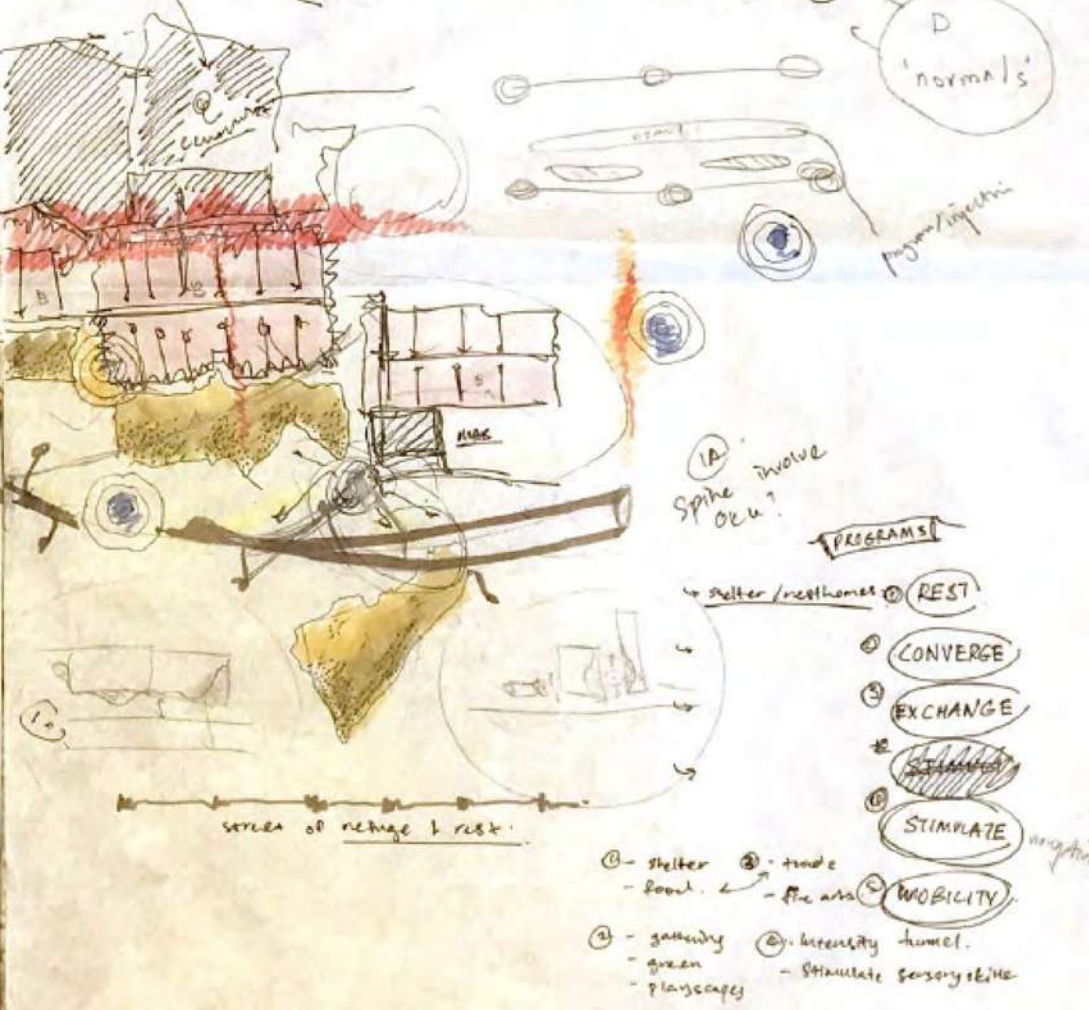 D
'normals'
program/injection
1A
Spine involve
OKU?
PROGRAMS
shelter/resthomes ① REST
② CONVERGE
③ EXCHANGE
STIMULATE
⑤ MOBILITY
1a
street of refuge & rest.
① - shelter
- food.
③ - trade
- fine arts
② - gathering
- green
- playscapes
④ - Intensity tunnel.
- Stimulate sensory skills